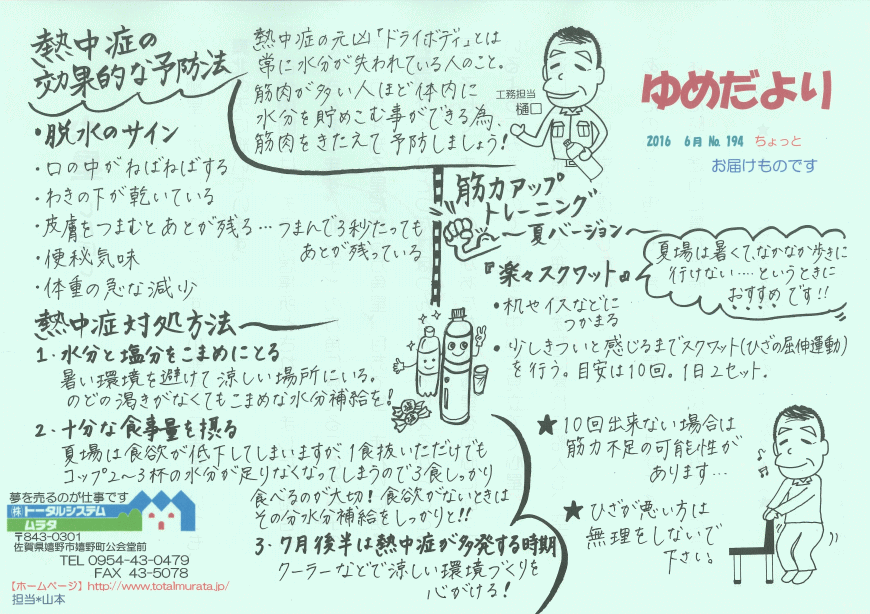 熱中症の
効果的な予防法
熱中症の元凶「ドライボディ」とは
常に水分が失われている人のこと。
筋肉が多い人ほど体内に
水分を貯めこむ事ができる為、
筋肉をきたえて予防しましょう!
工務担当
樋口
ゆめだより
2016 6月 No.194 ちょっと
お届けものです
・脱水のサイン
・口の中がねばねばする
・わきの下が乾いている
・皮膚をつまむとあとが残る…つまんで3秒たっても
あとが残っている
・便秘気味
・体重の急な減少
熱中症対処方法
1.水分と塩分をこまめにとる
暑い環境を避けて涼しい場所にいる。
のどの渇きがなくてもこまめな水分補給を!
2.十分な食事量を摂る
夏場は食欲が低下してしまいますが、1食抜いただけでも
コップ2〜3杯の水分が足りなくなってしまうので3食しっかり
食べるのが大切!食欲がないときは
その分水分補給をしっかりと!!
3.7月後半は熱中症が多発する時期
クーラーなどで涼しい環境づくりを
心がける!
筋力アップ
トレーニング
〜夏バージョン〜
『楽々スクワット』
夏場は暑くて、なかなか歩きに
行けない‥‥というときに
おすすめです!!
・机やイスなどに
つかまる
・少しきついと感じるまでスクワット(ひざの屈伸運動)
を行う。目安は10回。1日2セット.
★10回出来ない場合は
筋力不足の可能性が
あります…
★ひざが悪い方は
無理をしないで
下さい。
夢を売るのが仕事です
㈱トータルシステム
ムラタ
〒843-0301
佐賀県嬉野市嬉野町公会堂前
TEL 0954-43-0479
FAX 43-5078
【ホームページ】http://www.totalmurata.jp/
担当*山本